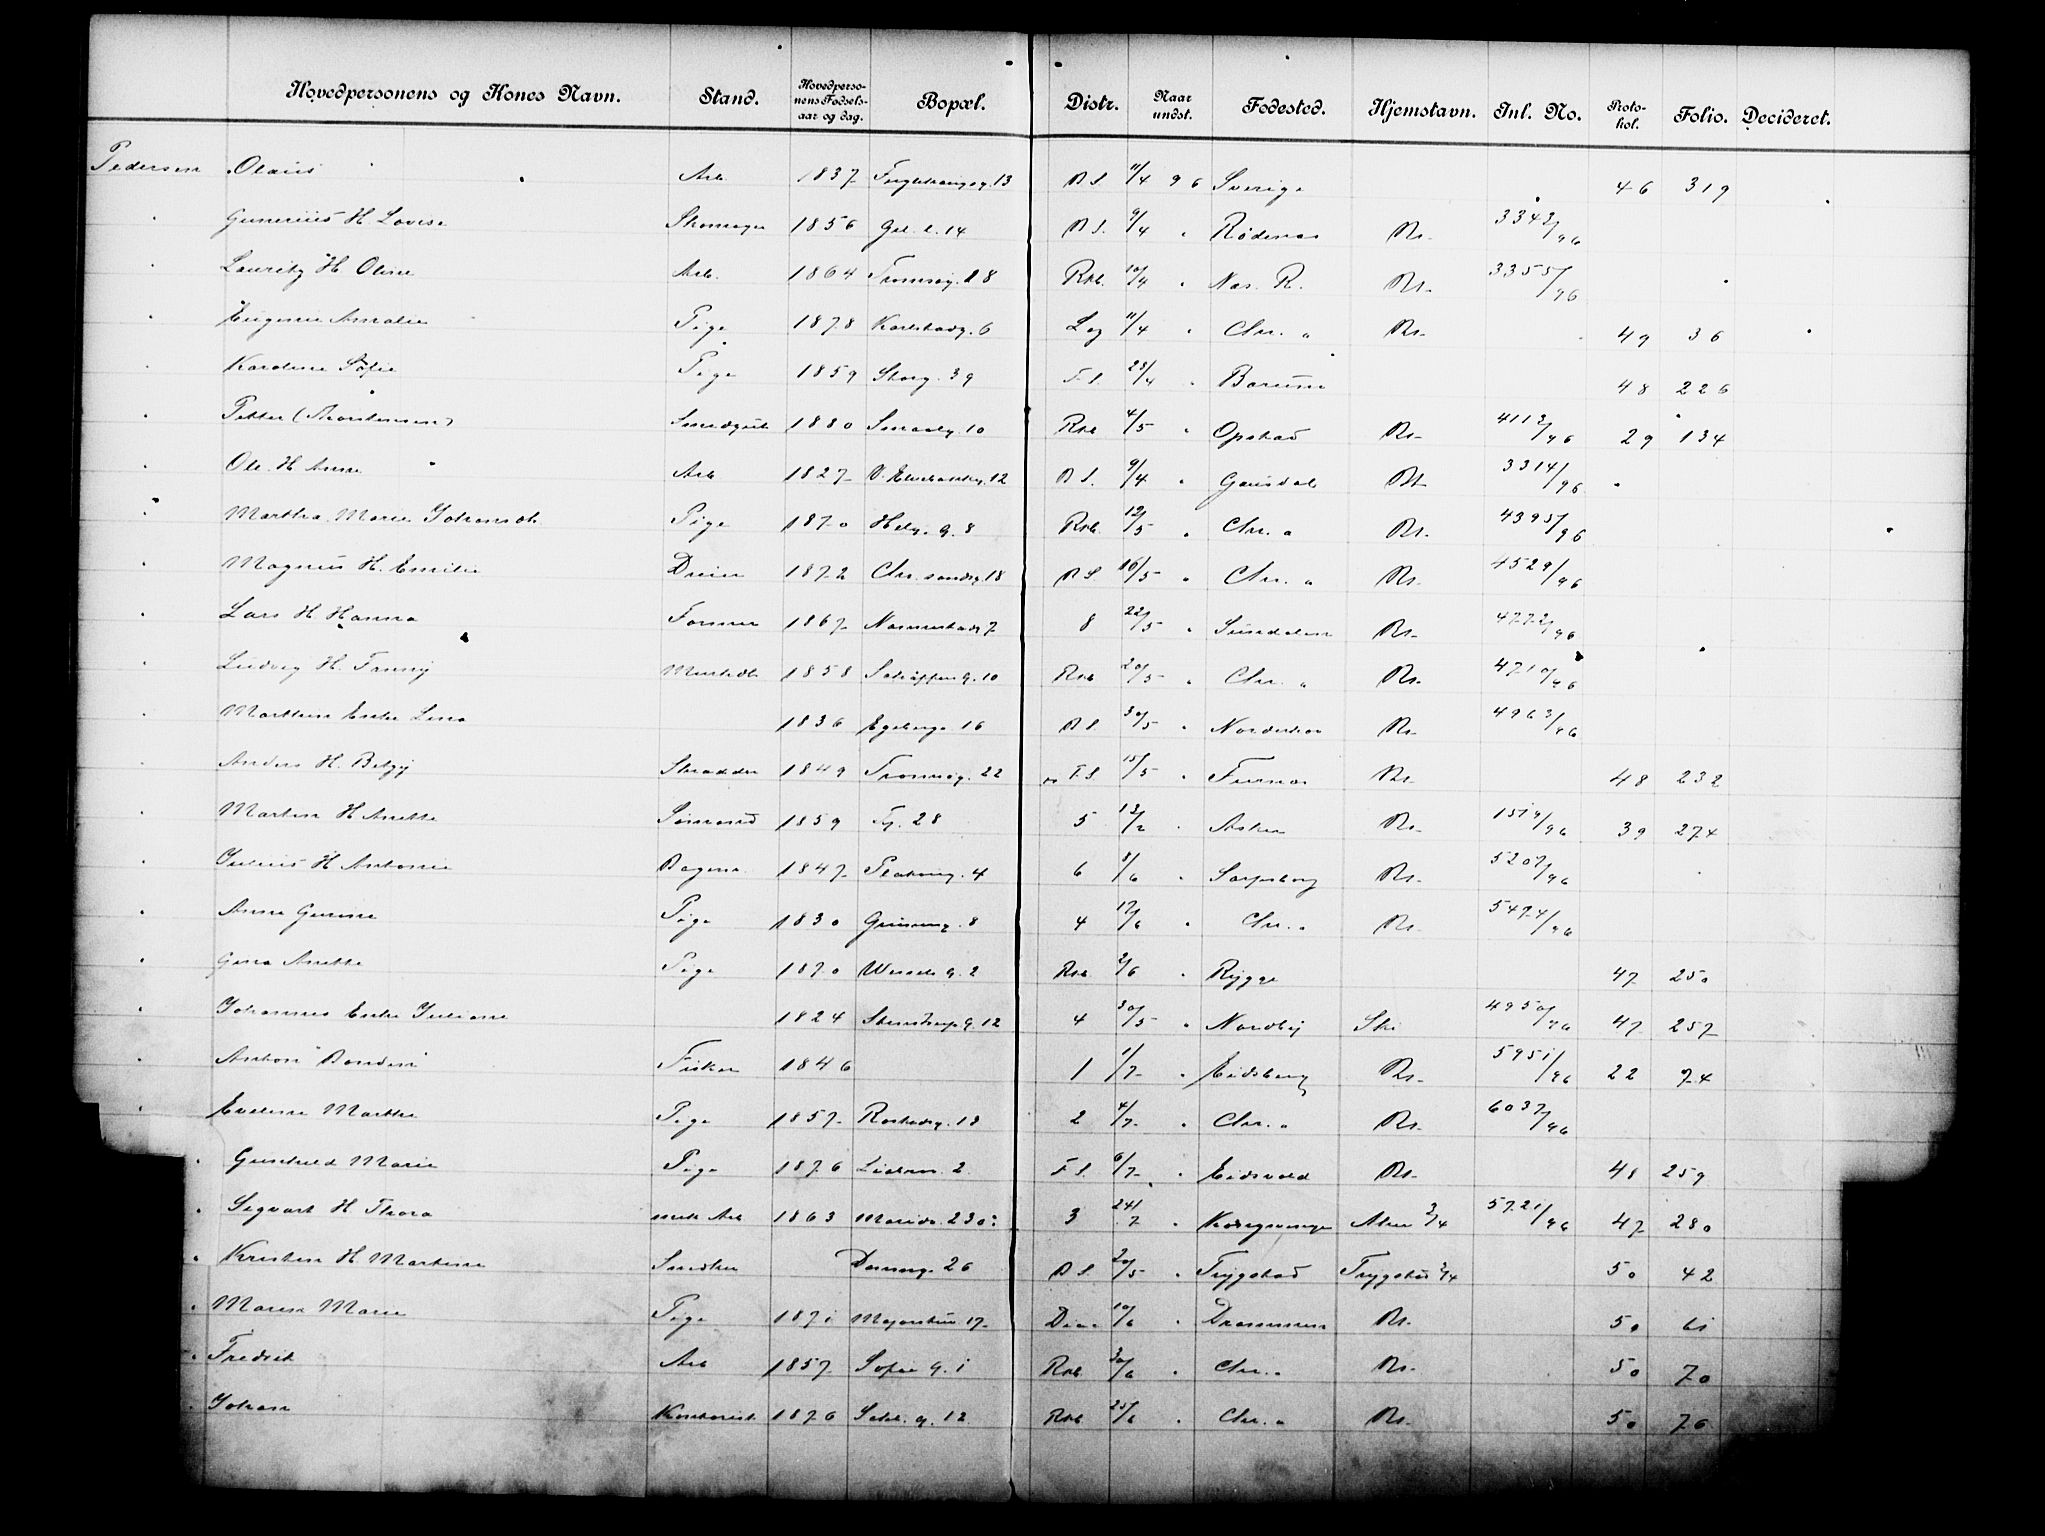 Hovedpersonens og Kones Navn. Stand. Hovedpersonens Fødselsaar og dag. Bopæl. Distr. Naar undst. Fødested. Hjemstavn. Inl. No. Protokol. Folio. Decideret.
Pedersen Olaus Arb. 1837 13 B S. 11/4 96 Sverige 46 319
" Gunerius H. Lovise Skomager 1856 14 B S. 9/4 " Rødenes Bt. 3343/96
" Lauritz H. Oline Arb. 1864 Tromsøg. 28 Rkb. 10/4 " Næs. R. Bt. 3355/96
" Eugenie Amalie Pige 1878 Karlstadg. 6 Log 11/4 " Chr. a Bt. 49 36
" Karoline Sofie Pige 1859 Storg. 39 F. S. 23/4 " Bærum 48 226
" Petter (Thorstensen) Smedgut 1880 Smaalg. 10 Rkb 4/5 " Opstad Bt. 4113/96 29 134
" Ole H. Anne Arb 1827 12 B S. 9/4 " Gausdal Bt 3314/96
" Martha Marie Johansdt. Pige 1870 Helg. g. 8 Rkb. 12/5 " Chr. a Bt. 4395/96
" Magnus H. Emilie Dreier 1872 Chr. sandsg. 18 B S. 16/5 " Chr. a Bt. 4529/96
" Lars H. Hanna Former 1867 Nannestadg. 7 8 22/5 " Sundalen Bt. 4772/96
" Ludvig H. Fanny Murhdl. 1858 Schüppeng. 10 Rkb 20/5 " Chr. a Bt. 4710/96
" Marthin Enke Lina 1836 Egebergs. 16 B S. 30/5 " Norderhov Bt. 4963/96
" Anders H. Betzy Skrædder 1849 Tromsøg. 22 F. S. 15/5 " Furnes Bt. 48 232
" Martin H. Anette Sømand 1859 Tg. 28 5 13/2 " Asker Bt. 1519/96 39 274
" Julius H. Antonie Bagers. 1847 4 6 8/6 " Sarpsborg Bt. 5207/96
" Anne Gurine Pige 1830 Grünerg. 8 4 17/6 " Chr. a Bt. 5474/96
" Gina Anette Pige 1870 Wessels g. 2 Rkb 2/6 " Rygge 47 250
" Johannes Enke Juliane 1824 Stenstrup g. 12 4 30/5 " Nordby Ski 4950/96 47 257
" Anton "Bonden" Fisker 1846 1 1/7 " Eidsberg Bt. 5951/96 22 74
" Eveline Marthe Pige 1857 Rostedsg. 13 2 4/7 " Chr. a Bt. 6037/96
" Gunhild Marie Pige 1876 2 F. S. 6/7 " Eidsvold Bt. 48 259
" Sigvart H. Thora Arb 1863 Marids. 230 3 24/7 " Kongsvinger Aker 2/4 5721/96 47 280
" Kristen H. Martine Snedker 26 B S. 20/5 " Trygstad Trygstad 2/4 50 42
" Maren Marie Pige 1871 Majorstu 17 10/6 " Drammen Bt. 50 61
" Fredrik Arb 1857 Sofie g. 1 Rkb. 30/6 " Chr. a Bt. 50 70
" Johan Kontorist 1876 Schl. g. 12 Rkb 25/6 " Chr. a Bt. 50 76